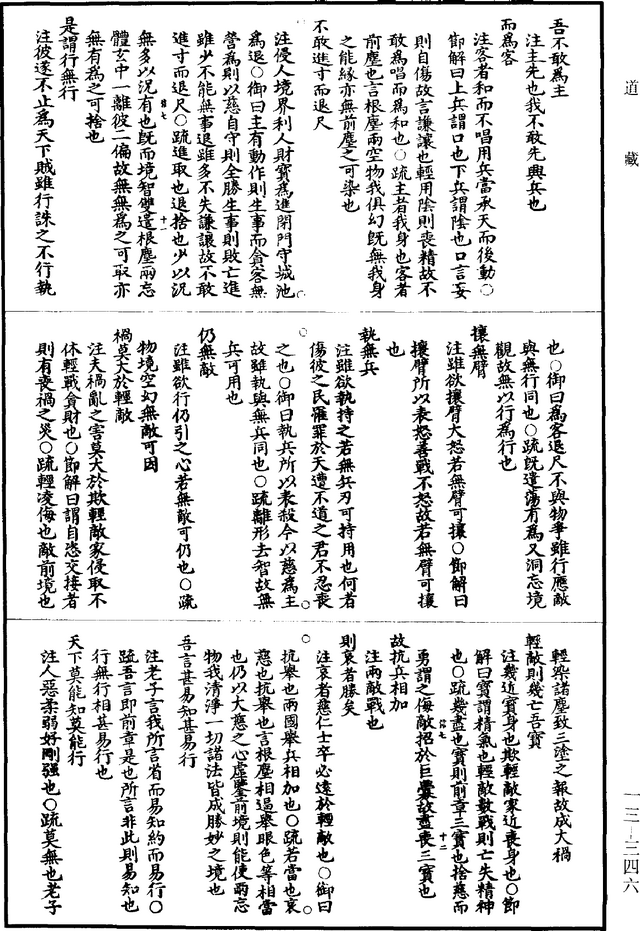 道藏
吾不敢為主
注主先也我不敢先興兵也
而為客
注客者和而不唱用兵當承天而後動○
節解曰上兵謂口也下兵謂陰也口言妄
則自傷故言謙讓也輕用陰則喪精故不
敢為唱而為和也○疏主者我身也客者
前塵也言根塵兩空物我俱幻既無我身
之能緣亦無前塵之可染也
不敢進寸而退尺
注侵人境界利人財寶為進閉門守城池
為退○御曰主有動作則生事而貪客無
營為則以慈自守則全勝生事則敗亡進
雖少不能無事退雖多不失謙讓故不敢
進寸而退尺○疏進取也退捨也少以況
無多以況有也既而境智雙遣根塵兩忘
體玄中一離彼二偏故無無為之可取亦
無有為之可捨也
是謂行無行
注彼遂不止為天下賊雖行誅之不行執
也○御曰為客退尺不與物爭雖行應敵
與無行同也○疏既遣蕩有為又洞忘境
觀故無以行為行也
攘無臂
注雖欲攘臂大怒若無臂可攘○節解曰
攘臂所以表怒善戰不怒故若無臂可攘
也
執無兵
注雖欲執持之若無兵刃可持用也何者
傷彼之民罹罪於天遭不道之君不忍喪
之也○御曰執兵所以表殺今以慈為主
故雖執與無兵同也○疏離形去智故無
兵可用也
仍無敵
注雖欲行仍引之心若無敵可仍也○疏
物境空幻無敵可因
禍莫大於輕敵
注夫禍亂之害莫大於欺輕敵家侵取不
休輕戰貪財也○節解曰謂自恣交接者
則有喪禍之災○疏輕凌侮也敵前境也
輕染諸塵致三塗之報故成大禍
輕敵則幾亡吾寶
注幾近寶身也欺輕敵家近喪身也○節
解曰寶謂精氣也輕敵數戰則亡失精神
也○疏幾盡也寶則前章三寶也捨慈而
勇謂之侮敵招於巨釁故盡喪三寶也
故抗兵相加
注兩敵戰也
則哀者勝矣
注哀者慈仁士卒必遠於輕敵也○御曰
抗舉也兩國舉兵相加也○疏若當也哀
慈也抗舉也言根塵相逼舉眼色等相當
也仍以大慈之心虛鑒前境則能使兩忘
物我清淨一切諸法皆成勝妙之境也
吾言甚易知甚易行
注老子言我所言省而易知約而易行○
疏吾言即前章是也所言非此則易知也
行無行相甚易行也
天下莫能知莫能行
注人惡柔弱好剛强也○疏莫無也老子
一三－三四六